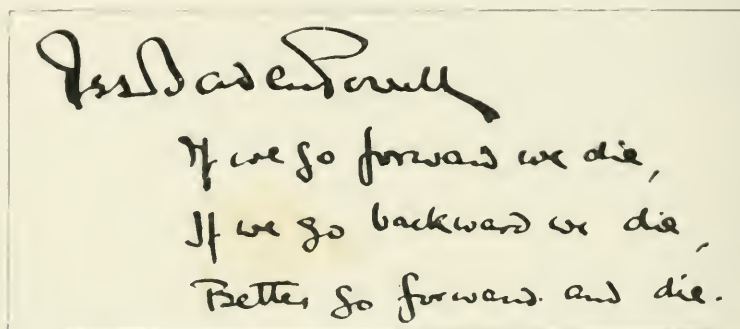 RSS Baden Powell
If we go forward we die,
If we go backward we die,
Better go forward. and die.